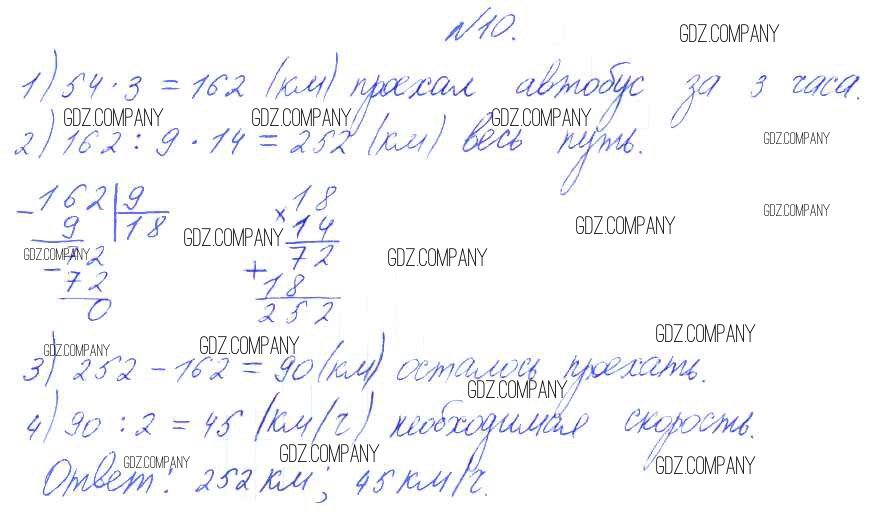 №10.
GDZ.COMPANY
1) 54 · 3 = 162 (км) проехал автобус за 3 часа.
GDZ.COMPANY GDZ.COMPANY GDZ.COMPANY
2) 162 : 9 · 14 = 252 (км) весь путь.
GDZ.COMPANY
− 162 | 9 18
9 | 18 × 14
GDZ.COMPANY GDZ.COMPANY GDZ.COMPANY
GDZ.COMPANY GDZ.COMPANY
− 72 72
72 + 18
0 252
GDZ.COMPANY GDZ.COMPANY GDZ.COMPANY
3) 252 − 162 = 90 (км) осталось проехать.
GDZ.COMPANY
4) 90 : 2 = 45 (км/ч) необходимая скорость.
GDZ.COMPANY GDZ.COMPANY GDZ.COMPANY
Ответ: 252 км; 45 км/ч.